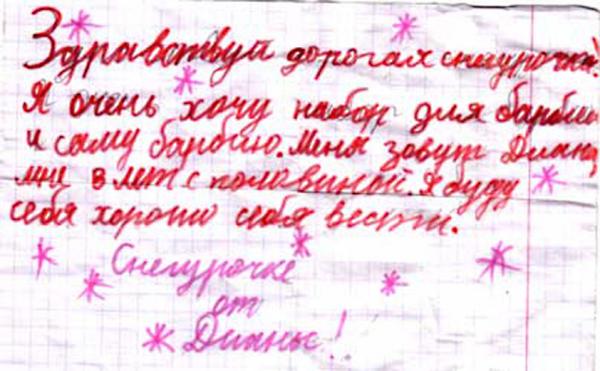 Здравствуй дорогая снегурочка!
Я очень хочу набор для барбии
и саму барбию. Меня зовут Диана,
мне 8 лет с половиной. Я буду
себя хорошо себя вести.
Снегурочке
от
Дианы!